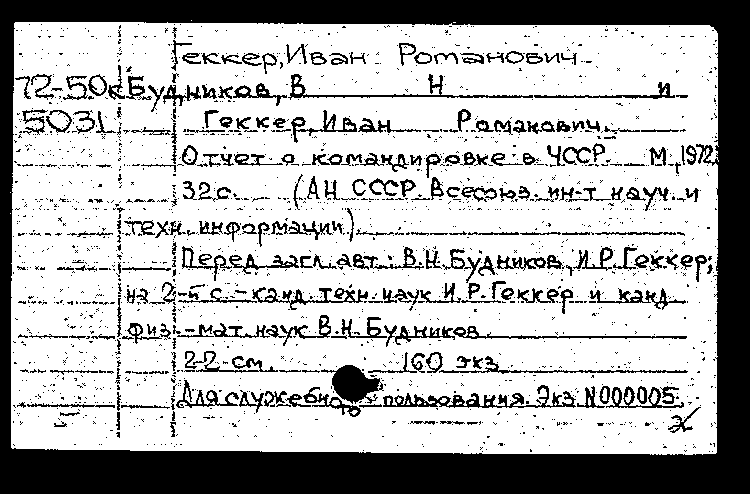 Геккер, Иван Романович
72-50к Будников, В Н и
5031 Геккер, Иван Романович.
Отчет о командировке в ЧССР. М., 1972
32 с. (АН СССР. Всесоюз. ин-т науч. и
техн. информации).
Перед загл. авт.: В.Н. Будников, И.Р. Геккер;
на 2-й с. - канд. техн. наук И.Р. Геккер и канд.
физ.-мат. наук В.Н. Будников.
22 см. 160 экз.
Для служебного пользования. Экз. N000005.